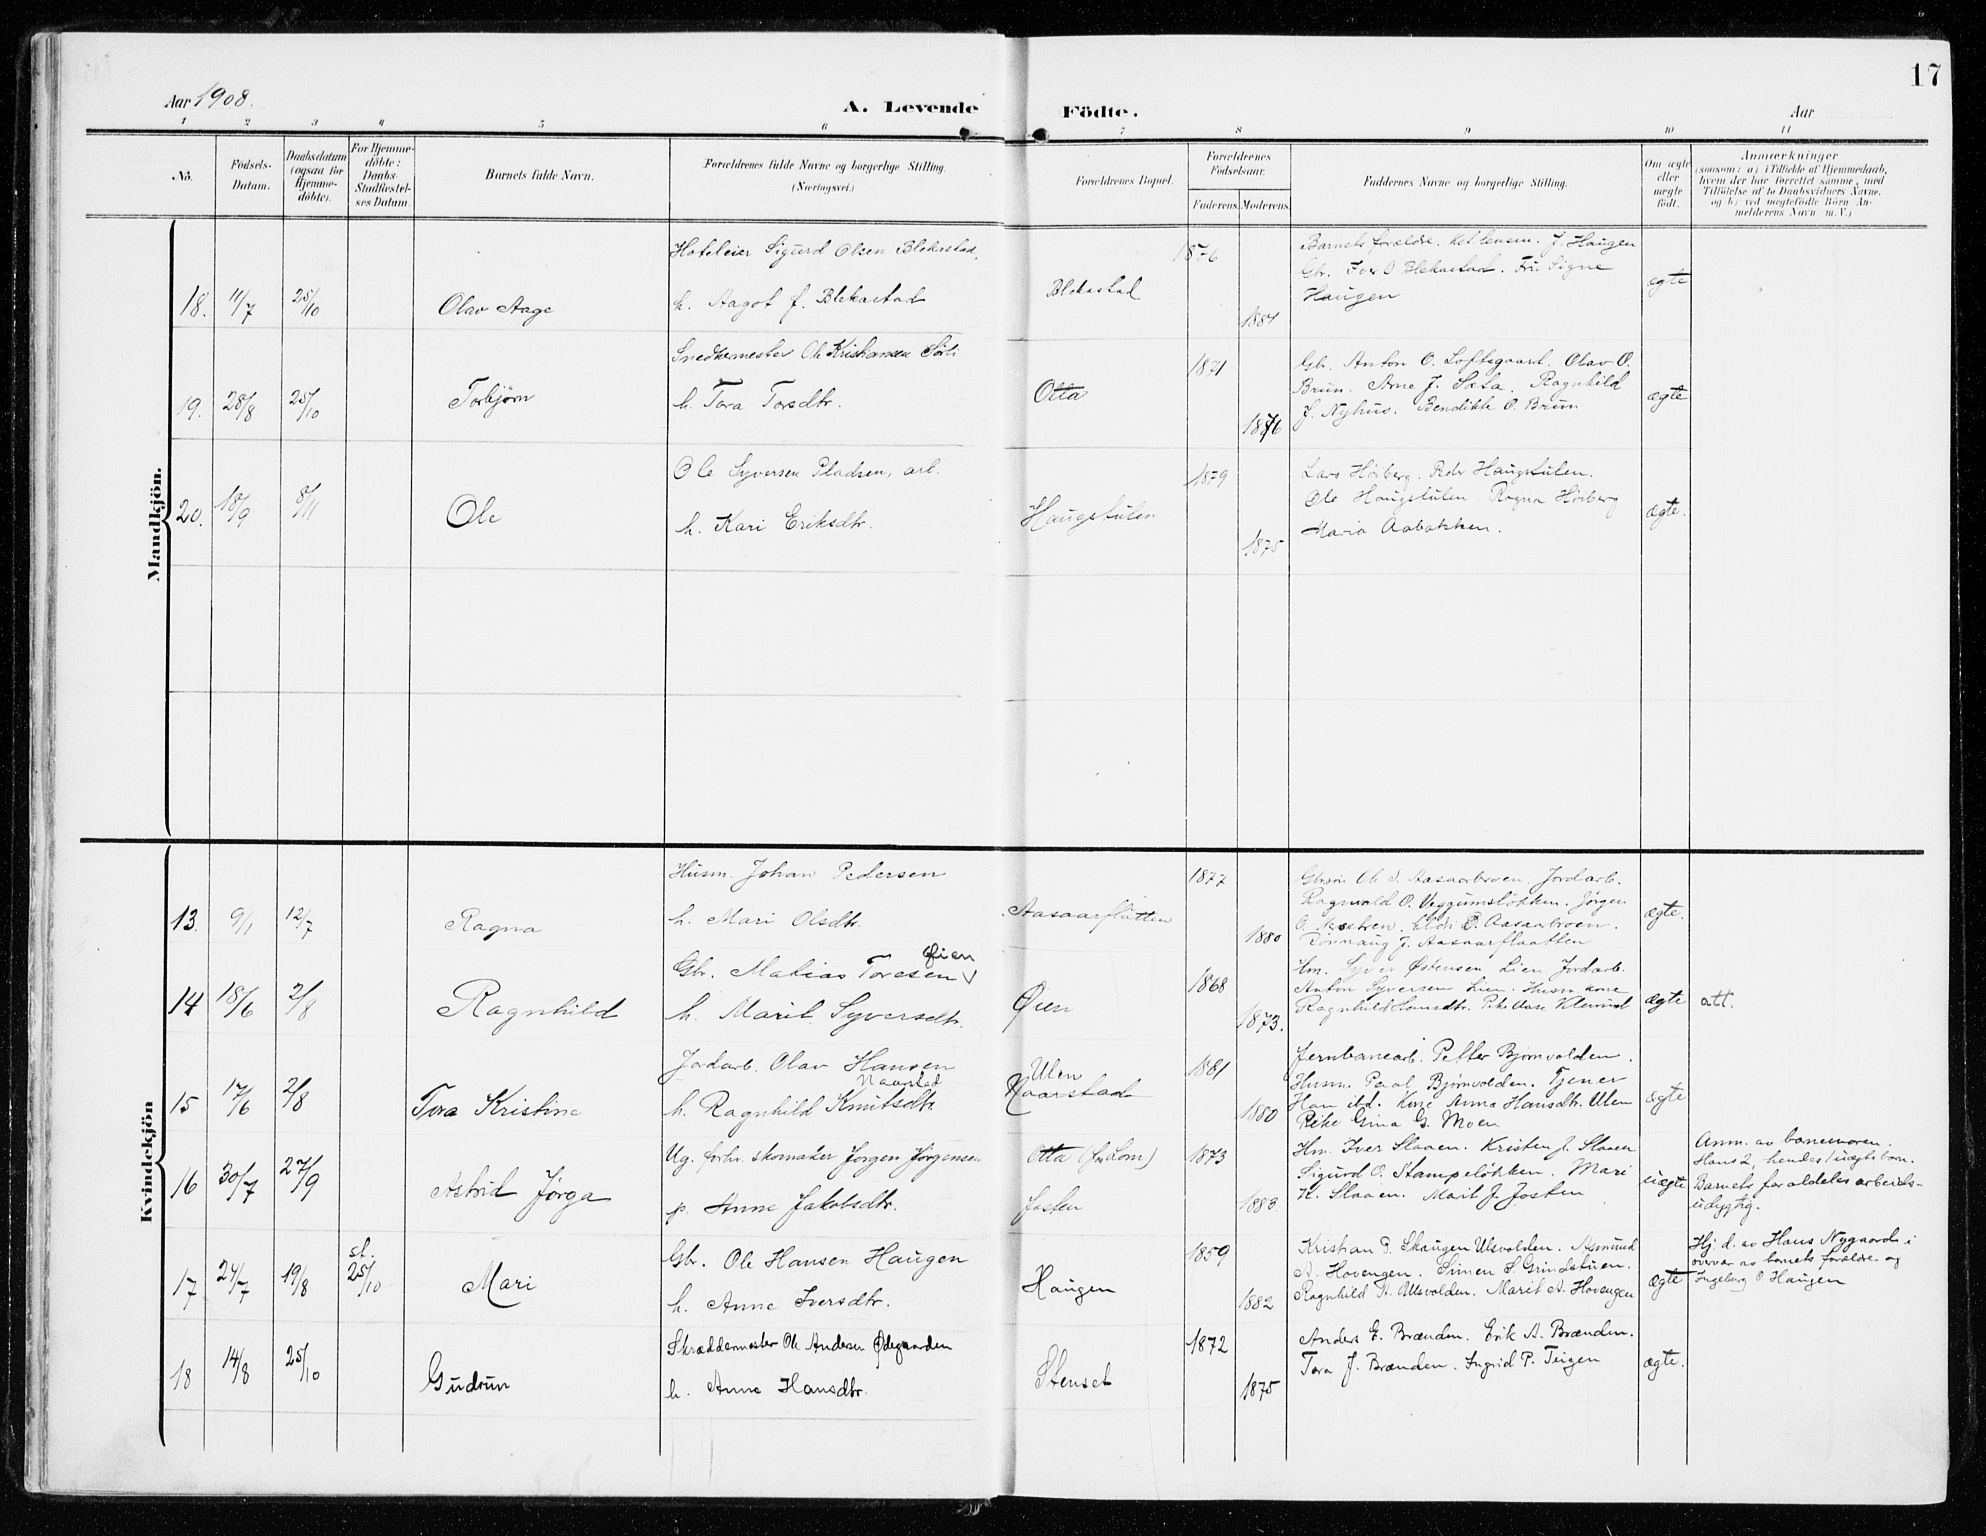 17
Aar 1908.
A. Levende Födte.
Aar
1 2 3 4 5 6 7 8 9 10 11
No.
Födsels-
Datum.
Daabsdatum
(ogsaa for
Hjemme-
döbte).
For Hjemme-
döbte:
Daabs-
Stadfæstel-
ses Datum.
Barnets fulde Navn.
Forældrenes fulde Navne og borgerlige Stilling.
(Næringsvei.)
Forældrenes Bopæl.
Forældrenes
Födselsaar.
Faderens. Moderens.
Faddernes Navne og borgerlige Stilling.
Om ægte
eller
uægte
födt.
Anmærkninger
(saasom: a) i Tilfælde af Hjemmedaab,
hvem der har forrettet samme, med
Tilföielse af to Daabsvidners Navne,
og b) ved uægtefödte Börn An-
melderens Navn m. V.)
Mandkjön.
18. 11/7 25/10
Olav Aage
Hoteleier Sigurd Olsen Blekastad,
h. Aagot f. Blekastad
Blekastad
1876
1884
Barnets forældre. J. Haugen
Gbr. Iver O Blekastad. Fru Signe
Haugen
ægte
19. 28/8 25/10
Torbjørn
Snedkermester Ole Kristiansen Sørli
h. Tora Torsdtr.
Otta
1871
1876
Gbr. Anton O. Loftsgaard. Olav O.
Brun. Arne J. Sæta. Ragnhild
J. Nyhus. Bendikte O. Brun
ægte
20. 18/9 8/11
Ole
Ole Syversen Pladsen, arb.
h. Kari Eriksdtr.
Haugstulen
1879
1875
Lars Høiberg. Pedr Haugstulen.
Ole Haugstulen. Ragna Høiberg
Maria Aabakken.
ægte.
Kvindekjön
13. 9/1 12/7
Ragna
Husm. Johan Pedersen
h. Mari Olsdtr.
Aasaarflatten
1877
1880
Gbrsøn Ole S. Aasaarbroen. Jordarb.
Ragnvald O. Veggumsløkken. Jörgen
O. Aasaarbroen.
Rønnaug J. Aasaarflaatten
ægte.
14 18/6 2/8
Ragnhild
Øien
Gbr. Matias Toresen
h. Marit Syversdtr.
Øien
1868
1873.
Hm. Syver Østensen Lien. Jordarb.
Anton Syversen Lien. Husm kone
Ragnhild Hansdtr. Pike Aase Klemud
ægte
att.
15 17/6 2/8
Tora Kristine
Jordarb. Olav Hansen
Naarstad
h. Ragnhild Knutsdtr.
Ulen
Naarstad
1881
1880
Jernbanearb. Petter Bjørnvolden.
Husm. Paal Bjørnvolden. Tjener
Han ibd. Kone Anna Hansdtr. Ulen
Pike Gina G. Moen
ægte
16 30/7 27/9
Astrid Jørga
Ug. forhv. skomaker Jørgen Jørgensen
p. Anne Jakobsdtr.
Otta (fr. Lom)
Josten
1873
1883.
Hm. Iver Slaaen. Kristen J. Slaaen
Sigurd O. Stampeløkken. Mari
K. Slaaen. Marit J. Josten
uægte
Anm. av barnemoren.
Hans 2, hendes 1 uægte barn.
Barnets far aldeles arbeids-
udygtig.
17 24/7 19/8
st.
25/10
Mari
Gbr. Ole Hansen Haugen
h. Anne Iversdtr.
Haugen
1859
1882
Kristian P. Skaugen Ulsvolden. Asmund
A. Hovengen. Simen S. Grindstuen.
Ragnhild A. Ulsvolden. Marit A. Hovengen
ægte
Hj. d. av Hans Nygaard i
overvær av barnets forældre og
Ingeborg O Haugen
18 14/8 25/10
Gudrun
Skræddermester Ole Andersen Ødegaarden
h. Anne Hansdtr.
Stenset
1872
1875
Anders E. Brænden. Erik A. Brænden.
Tora J. Brænden. Ingrid P. Teigen
ægte.